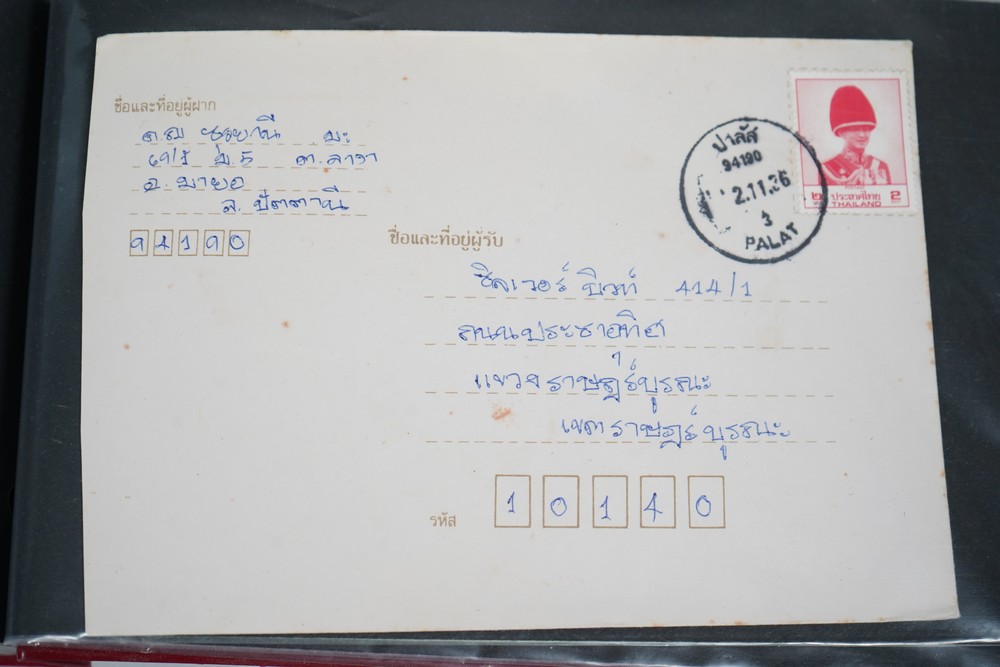 ชื่อและที่อยู่ผู้ฝาก
ม.5
อ. มายอ
จ. ปัตตานี
94190
ปาลัส
94190
2.11.36
3
PALAT
๒ ประเทศไทย 2
THAILAND
ชื่อและที่อยู่ผู้รับ
ซิลเวอร์ 414/1
ถนนประชาอุทิศ
แขวงราษฎร์บูรณะ
เขตราษฎร์บูรณะ
รหัส 10140